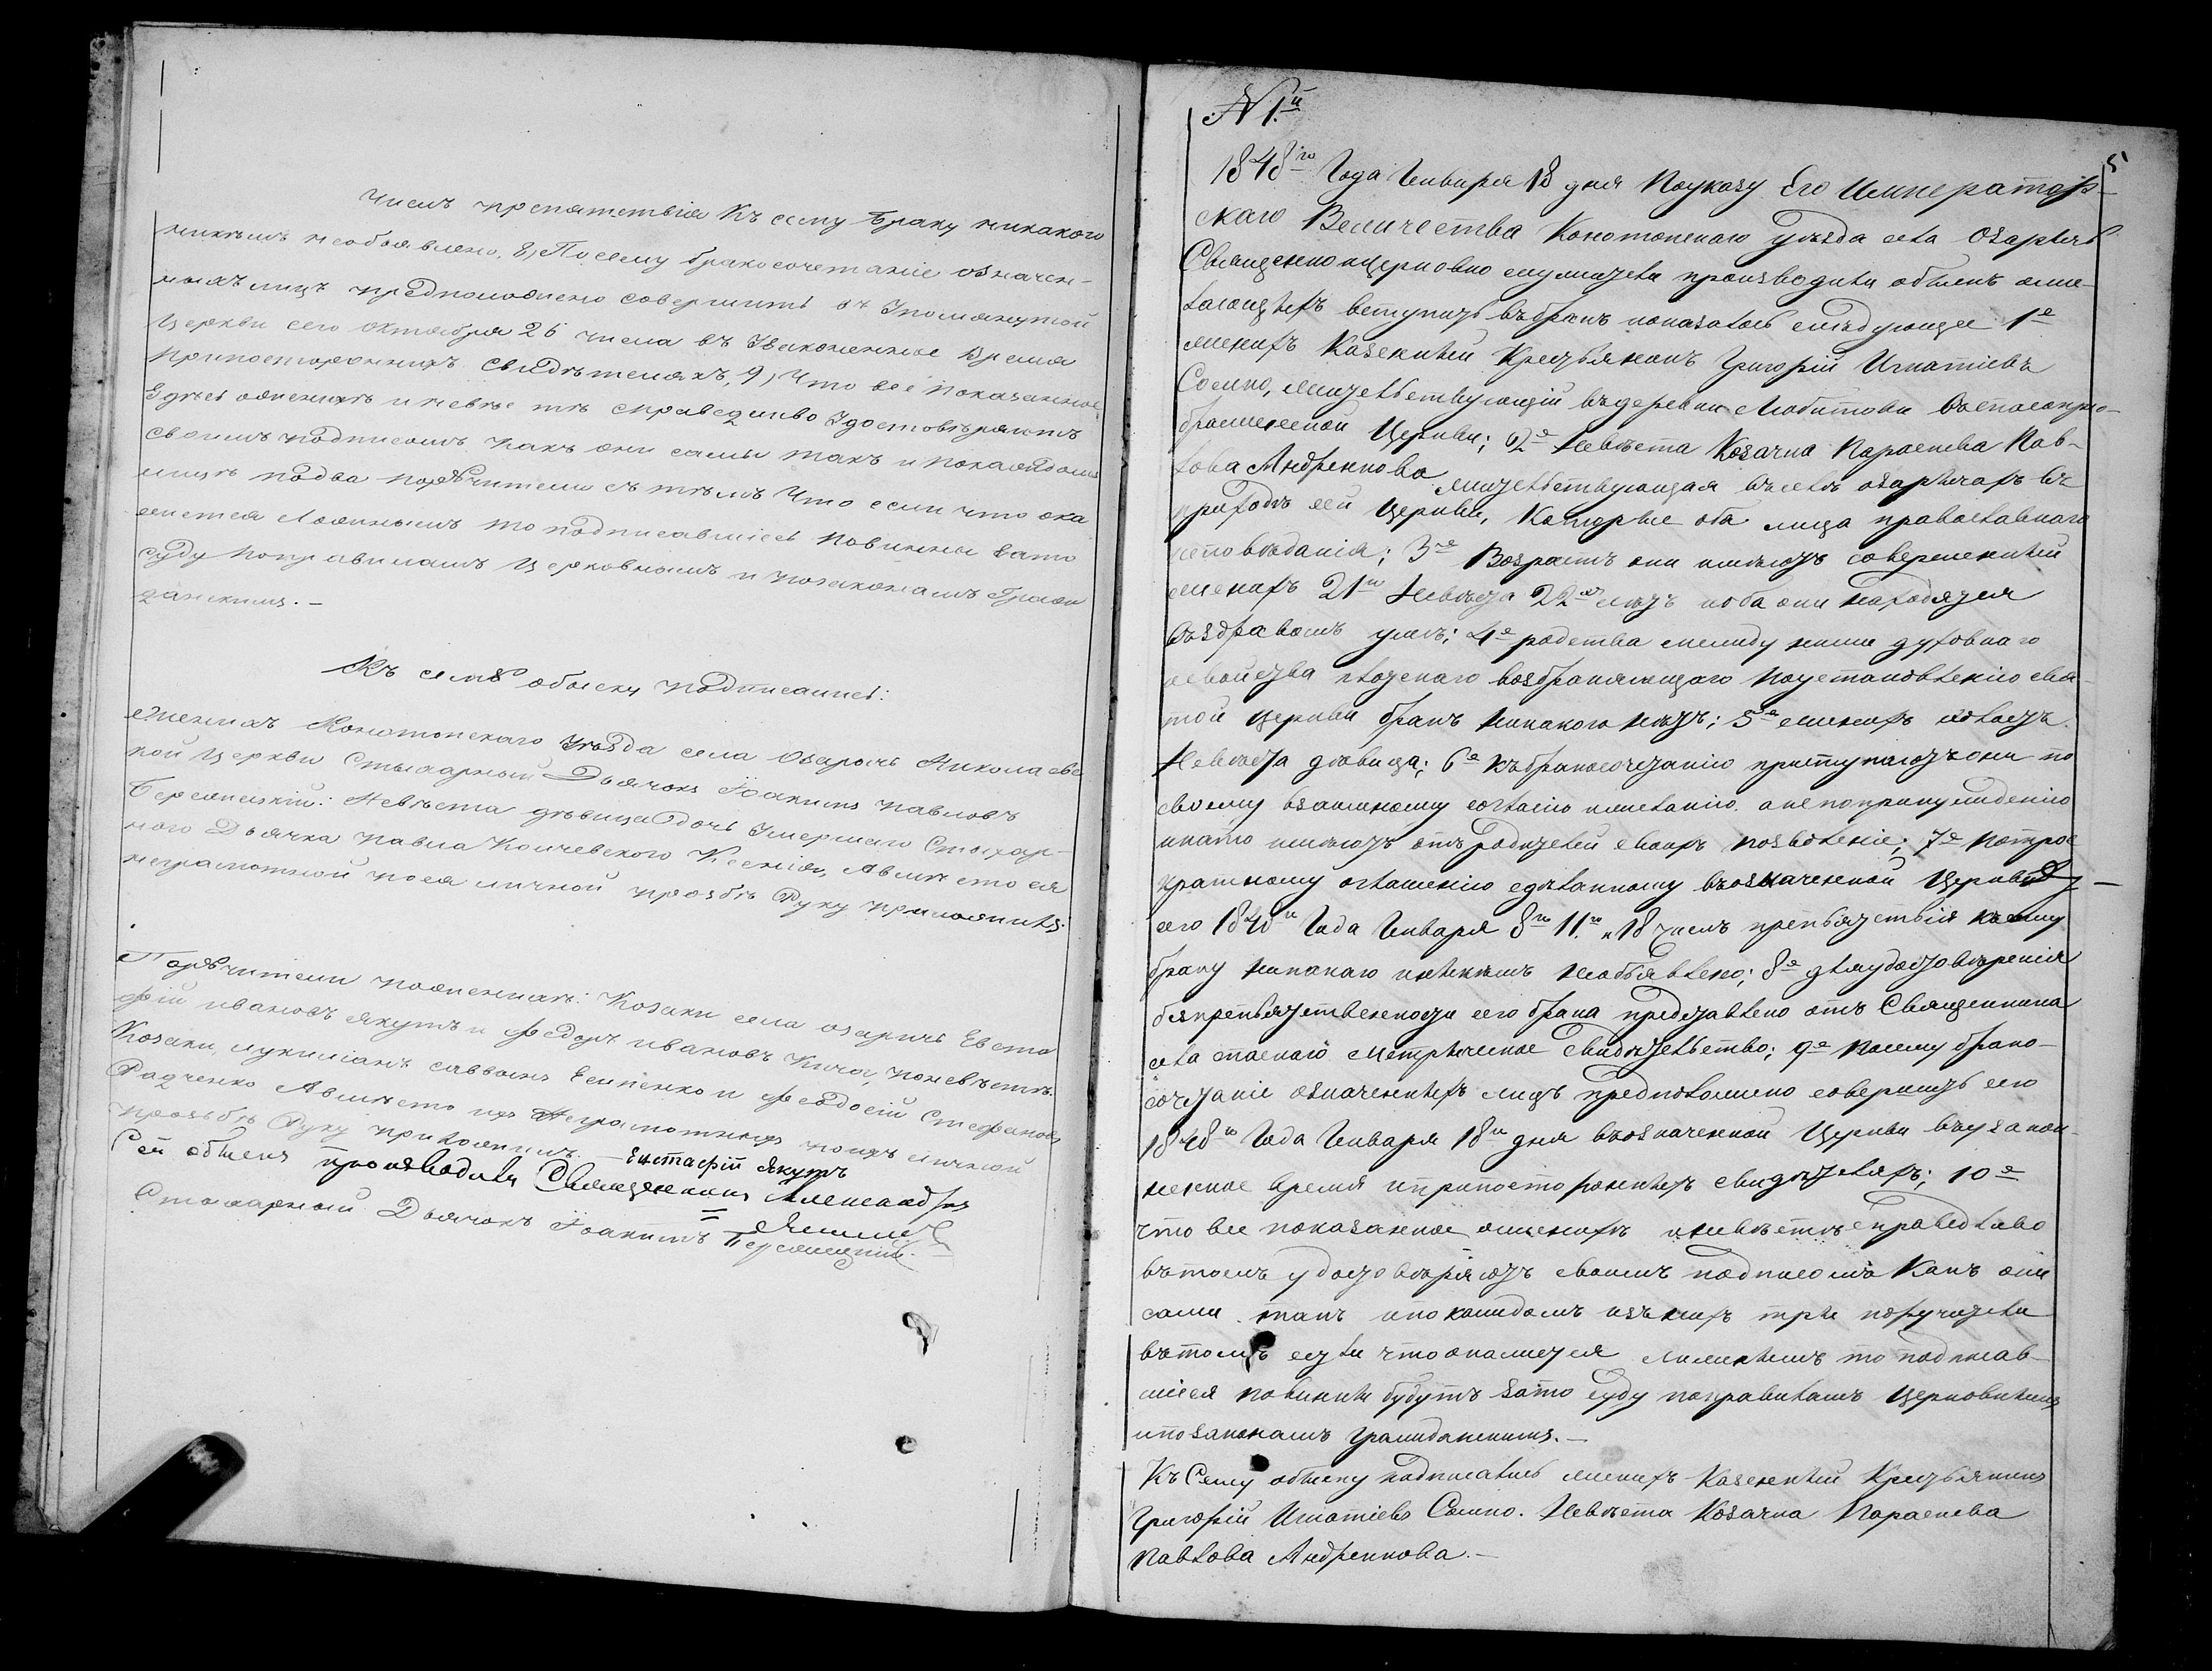 числъ препятствія Къ сему Браку никакого
никѣмъ необъявлено. 8, По сему бракосочетаніе означен-
ныхъ лицъ предположено совершить въ Упомянутой
Церкви сего октября 26 числа въ Узаконенное Время
Припостороннихъ Свидѣтеляхъ, 9, Что все показанное
Здѣсь оженихѣ и невѣстѣ справедливо Удостовѣряютъ
своимъ подписомъ какъ они самы такъ и покаждомъ
лицѣ подва порꙋчители съ тѣмъ Что если что ока
жется Ложнымъ то подписавшіесь Повинны зато
суду Поправиламъ Церковнымъ и позаконамъ Граж
данскимъ. –
Къ семꙋ обыску подписались:
Женихъ Конотопскаго Уѣзда села Озаричъ Николаевс
кой Церкви Стихарный Дьячокъ Іоакимъ Павловъ
Невѣста дѣвица дочь Умершаго Стихар-
наго Дьячка Павла Ксенія, Авмѣсто ея
неграмотной поея личной прозбѣ Руку приложилъ:
Порꙋчители поженихѣ: Козаки села озаричъ Евста
фій ивановъ якутъ и Федоръ ивановъ Кича, поневѣстѣ.
Козаки Лукиліанъ саввинъ Есипенко и Феодосій Стефановъ
Радченко Авмѣсто ихъ Неграмотныхъ поихъ личной
прозьбѣ Руку приложилъ. – Евстафій Якутъ
Сей обыскъ производили Священникъ Александръ
Стихарный Дьячокъ Іоакимъ
5
N 1.й
1848го Года Января 18 дня Поуказу Его Император-
скаго Величества Конотопскаго Уѣзда села Озаричъ
Священноицерковно служители производили обыскъ ожe-
лающихъ вступить въбракъ ипоказалось слѣдующее 1е
женихъ Казенный Крестьянинъ Григорій Игнатіевъ
Сомко, жительствующій въдеревни Любитови
Церкви; 2е Невѣста Козачка Параскева Пав-
лова Андрейкова жительствующая въселѣ озаричахъ въ
приходѣ сей Церкви, Которые оба лица православнаго
исповѣданія; 3е Возрастъ они имѣютъ совершенный
женихъ 21го Невѣста 22хъ лѣтъ иоба они находятся
въздравомъ умѣ; 4е родства между ними духовнаго
исвойства плотскаго возбраняющаго Поустановленію свя-
той Церкви бракъ никакого нѣтъ; 5е женихъ холостъ
Невѣста дѣвица; 6е къбракосочетанію приступаютъ они по
своему взаимному согласію ижеланію. анепопринужденію
инато имѣютъ отъ родителей своихъ позволеніе; 7е Потрое
кратному оглашенію сдѣланному въозначенной Церкви
сего 1848го Года Января 8го 11.го и 18 числъ препятствія къ сему
браку никакаго иникѣмъ необъявлено; 8е дляудостовѣренія
безпрепятственности сего брака представлено отъ Священника
села метрическое свидѣтельство; 9е Посему брако-
сочетаніе означенныхъ лицъ предположено совершить сего
1848го Года Января 18го дня въозначенной Церкви въузакон-
ненное время иприпостороннихъ свидѣтеляхъ; 10е
что все показанное оженихѣ иневѣстѣ справедливо
вътомъ удостовѣряютъ своимъ подписомъ Какъ они
сами такъ ипокаждомъ изънихъ три поручители
вътомъ если чтоокажется ложнымъ то подписав-
шіеся повинны будутъ зато суду поправиламъ Церковнымъ
ипозаконамъ гражданскимъ. –
Къ Сему обыску подписались женихъ Казенный Крестьянинъ
Григорій Игнатіевъ Сомко. Невѣста Козачка Параскева
Павлова Андрейкова. –